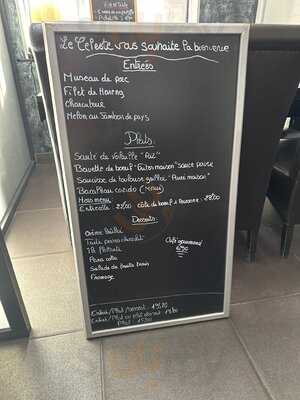 Le Celeste vous souhaite la bienvenue
Entrées
Museau de porc
Filet de Hareng
Charcuterie
Melon au Jambon de pays
Plats
Sauté de volaille "Riz"
Bavette de boeuf "Frites maison" sauce poivre
Saucisse de toulouse grillée "Purée maison"
Hors menu
Entrecote 22/00 côte de boeuf à Personne 28/00
Desserts
Crème brulée
Tarte poire chocolat
Café gourmand
Pana cota
Salade de fruits frais
Fromage
Entrée/Plat/dessert
Entrée/Plat ou plat dessert
Plat